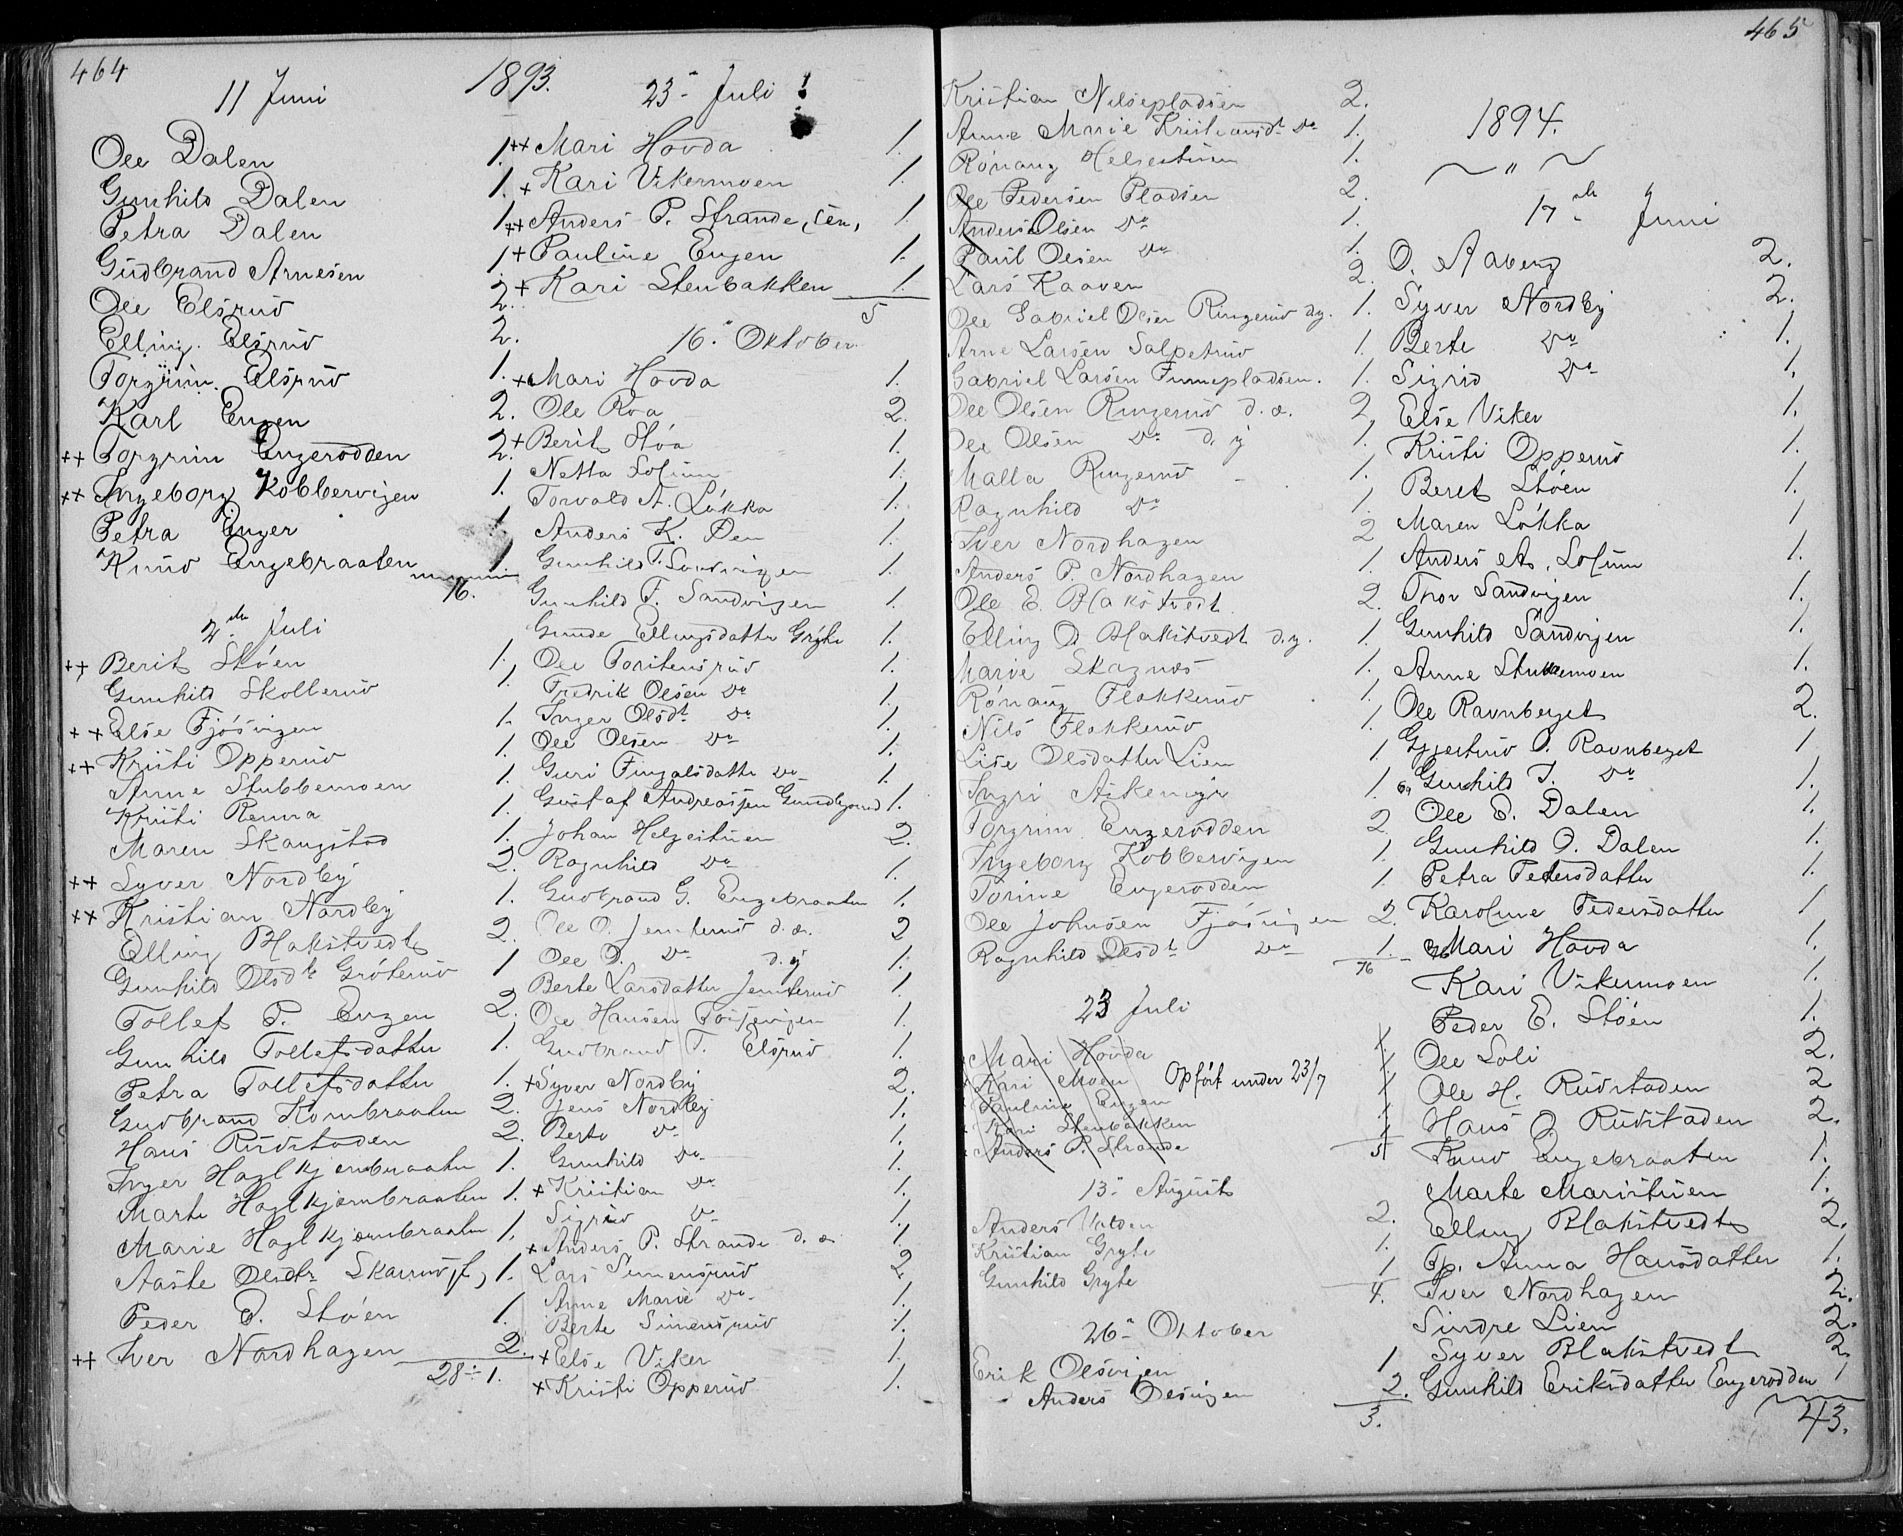 464
1893.
11 Juni
Ole Dalen 1.
Gunhild Dalen 1.
Petra Dalen 1
Gudbrand Arnesen 1
Ole Elsrud 2.
Elling Elsrud 2.
Torgrim Elsrud 1.
Karl Engen 2.
++ Torgrim Engerodden 2.
++ Ingeborg Kobbervigen 1.
Petra Enger 1
Knud Engebraaten 1.
16.
2den Juli
++ Berit Støen 1.
Gunhild Skollerud 1.
++ Else Fjøsvigen 1.
++ Kristi Opperud 1.
Anne Stubbemoen 1.
Kristi Renna 1.
Maren Skaugstad 1.
++ Syver Nordby 2.
++ Kristian Nordby 1.
Elling Blakstvedt 2.
Gunhild Olsdtr Grøterud 1
Tollef P. Engen 2.
Gunhild Tollefsdatter 1.
Petra Tollefsdatter 1.
Gudbrand Kornbraaten 2.
Hans Rudstaden 2.
Inger Haglkjernbraaten 1.
Marte Haglkjernbraaten 1.
Marie Haglkjernbraaten 1.
Aaste Olsdtr Skarrud 1.
Peder E. Støen 1.
++ Iver Nordhagen 2.
28 ÷ 1.
23- Juli !
++ Mari Hovda 1.
+ Kari Vikermoen 1.
++ Anders P. Strande, sen, 1.
+ Pauline Engen 1.
+ Kari Stenbakken 1.
5
16- Oktober
++ Mari Hovda 1.
Ole Roa 2.
+ Berit Støa 1.
Netta Solum 1.
Torvald A. Løkka 1.
Anders K. Øen 1.
Gunhild T. Sandvigen 1.
Gunhild F. Sandvigen 1.
Gunde Ellingsdatter Gryte 1.
Ole Torstensrud 1.
Fredrik Olsen Do 1.
Inger Olsdt Do 1.
Ole Olsen Do 1.
Guri Fingalsdatter Do 1.
Gustaf Andreassen 1.
Johan Helgestuen 2.
Ragnhild Do 1.
Gudbrand G. Engebraaten 1.
Ole O. Jemterud d.æ. 2
Ole O. Do d.y 1.
Berte Larsdatter Jemterud 1
Ole Hansen 1.
Gudbrand T. Elsrud 1.
+ Syver Nordby 2.
Jens Nordby 1.
Berte Do 1.
Gunhild Do 1.
+ Kristian Do 1.
Sigrid Do 1.
+ Anders P. Strande d.æ. 1
Lars Simensrud 2
Anne Marie Do 1.
Berte Simensrud 1.
+ Else Viker 1.
+ Kristi Opperud 1.
465
Kristian Nilsepladsen 2.
Anne Marie Kristiansdt Do 1.
Rønaug Helgestuen 1.
Ole Pedersen Pladsen 2.
Anders Olsen Do 1.
Paul Olsen Do 1.
Lars Kaaven 2.
Ole Gabriel Olsen Ringerud d.y. 1.
Arne Larsen Salpetrud 1.
Gabriel Larsen Finnepladsen. 1.
Ole Olsen Ringerud d.æ. 2
Ole Olsen Do d.y 1.
Malla Ringerud 1.
Ragnhild Do 1.
Iver Nordhagen 2
Anders P. Nordhagen 1.
Ole E. Blakstvedt 2.
Elling O Blakstvedt d.y. 1.
Marie Skagnæs 1.
Rønaug Flakkerud 1.
Nils Flakkerud 1.
Lise Olsdatter Lien 1
Ingri Askemyr 1.
Torgrim Engerodden 2.
Ingeborg Kobbervigen 1.
Torine Engerodden 1.
Ole Johnsen Fjøsvigen 2.
Ragnhild Olsdt Do 1.
76
23 Juli
Mari Hovda 1
Kari Moen 1
Pauline Engen 1
Kari Stenbakken 1
Anders P. Strande
Opført under 23/7
5
13- August
Anders Valdén 2.
Kristian Gryte 1.
Gunhild Gryte 1
4.
26- Oktober
Erik Olsvigen 1.
Anders Olsvigen 2.
3.
1894.
~ " ~
17de Juni
O. Aaberg 2.
Syver Nordby 2.
Berte Do 1.
Sigrid Do 1.
Else Viker 1.
Kristi Opperud 1.
Beret Støen 1.
Maren Løkka 1
Anders A. Solum 1.
Thor Sandvigen 1.
Gunhild Sandvigen 1.
Anne Stubbemoen 1.
Ole Ravnberget 2.
Gjertrud O. Ravnberget 1
Gunhild T. Do 1.
Ole E. Dalen 1.
Gunhild O. Dalen 1.
Petra Pedersdatter 1.
Karoline Pedersdatter 1
Mari Hovda 1.
Kari Vikermoen 1.
Peder E. Støen 1.
Ole Loli 2.
Ole H. Rudstaden 2
Hans O Rudstaden 2.
Knud Engebraaten 1.
Marte Maristuen 1.
Elling Blakstvedt 2.
Tp. Anna Hansdatter 1.
Iver Nordhagen 2.
Sindre Lien 2.
Syver Blakstvedt 2
Gunhild Eriksdatter Engerodden 1
43.